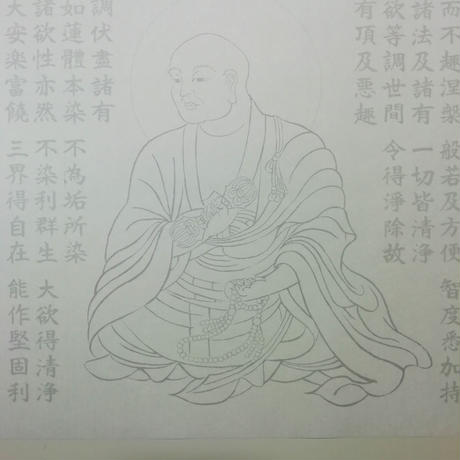 而不趣涅槃 般若及方便 智度悉加持
諸法及諸有 一切皆清浄
欲等調世間 令得淨除故
有頂及悪趣
調伏盡諸有
如蓮體本染 不為垢所染
諸欲性亦然 不染利群生 大欲得清浄
大安楽富饒 三界得自在 能作堅固利